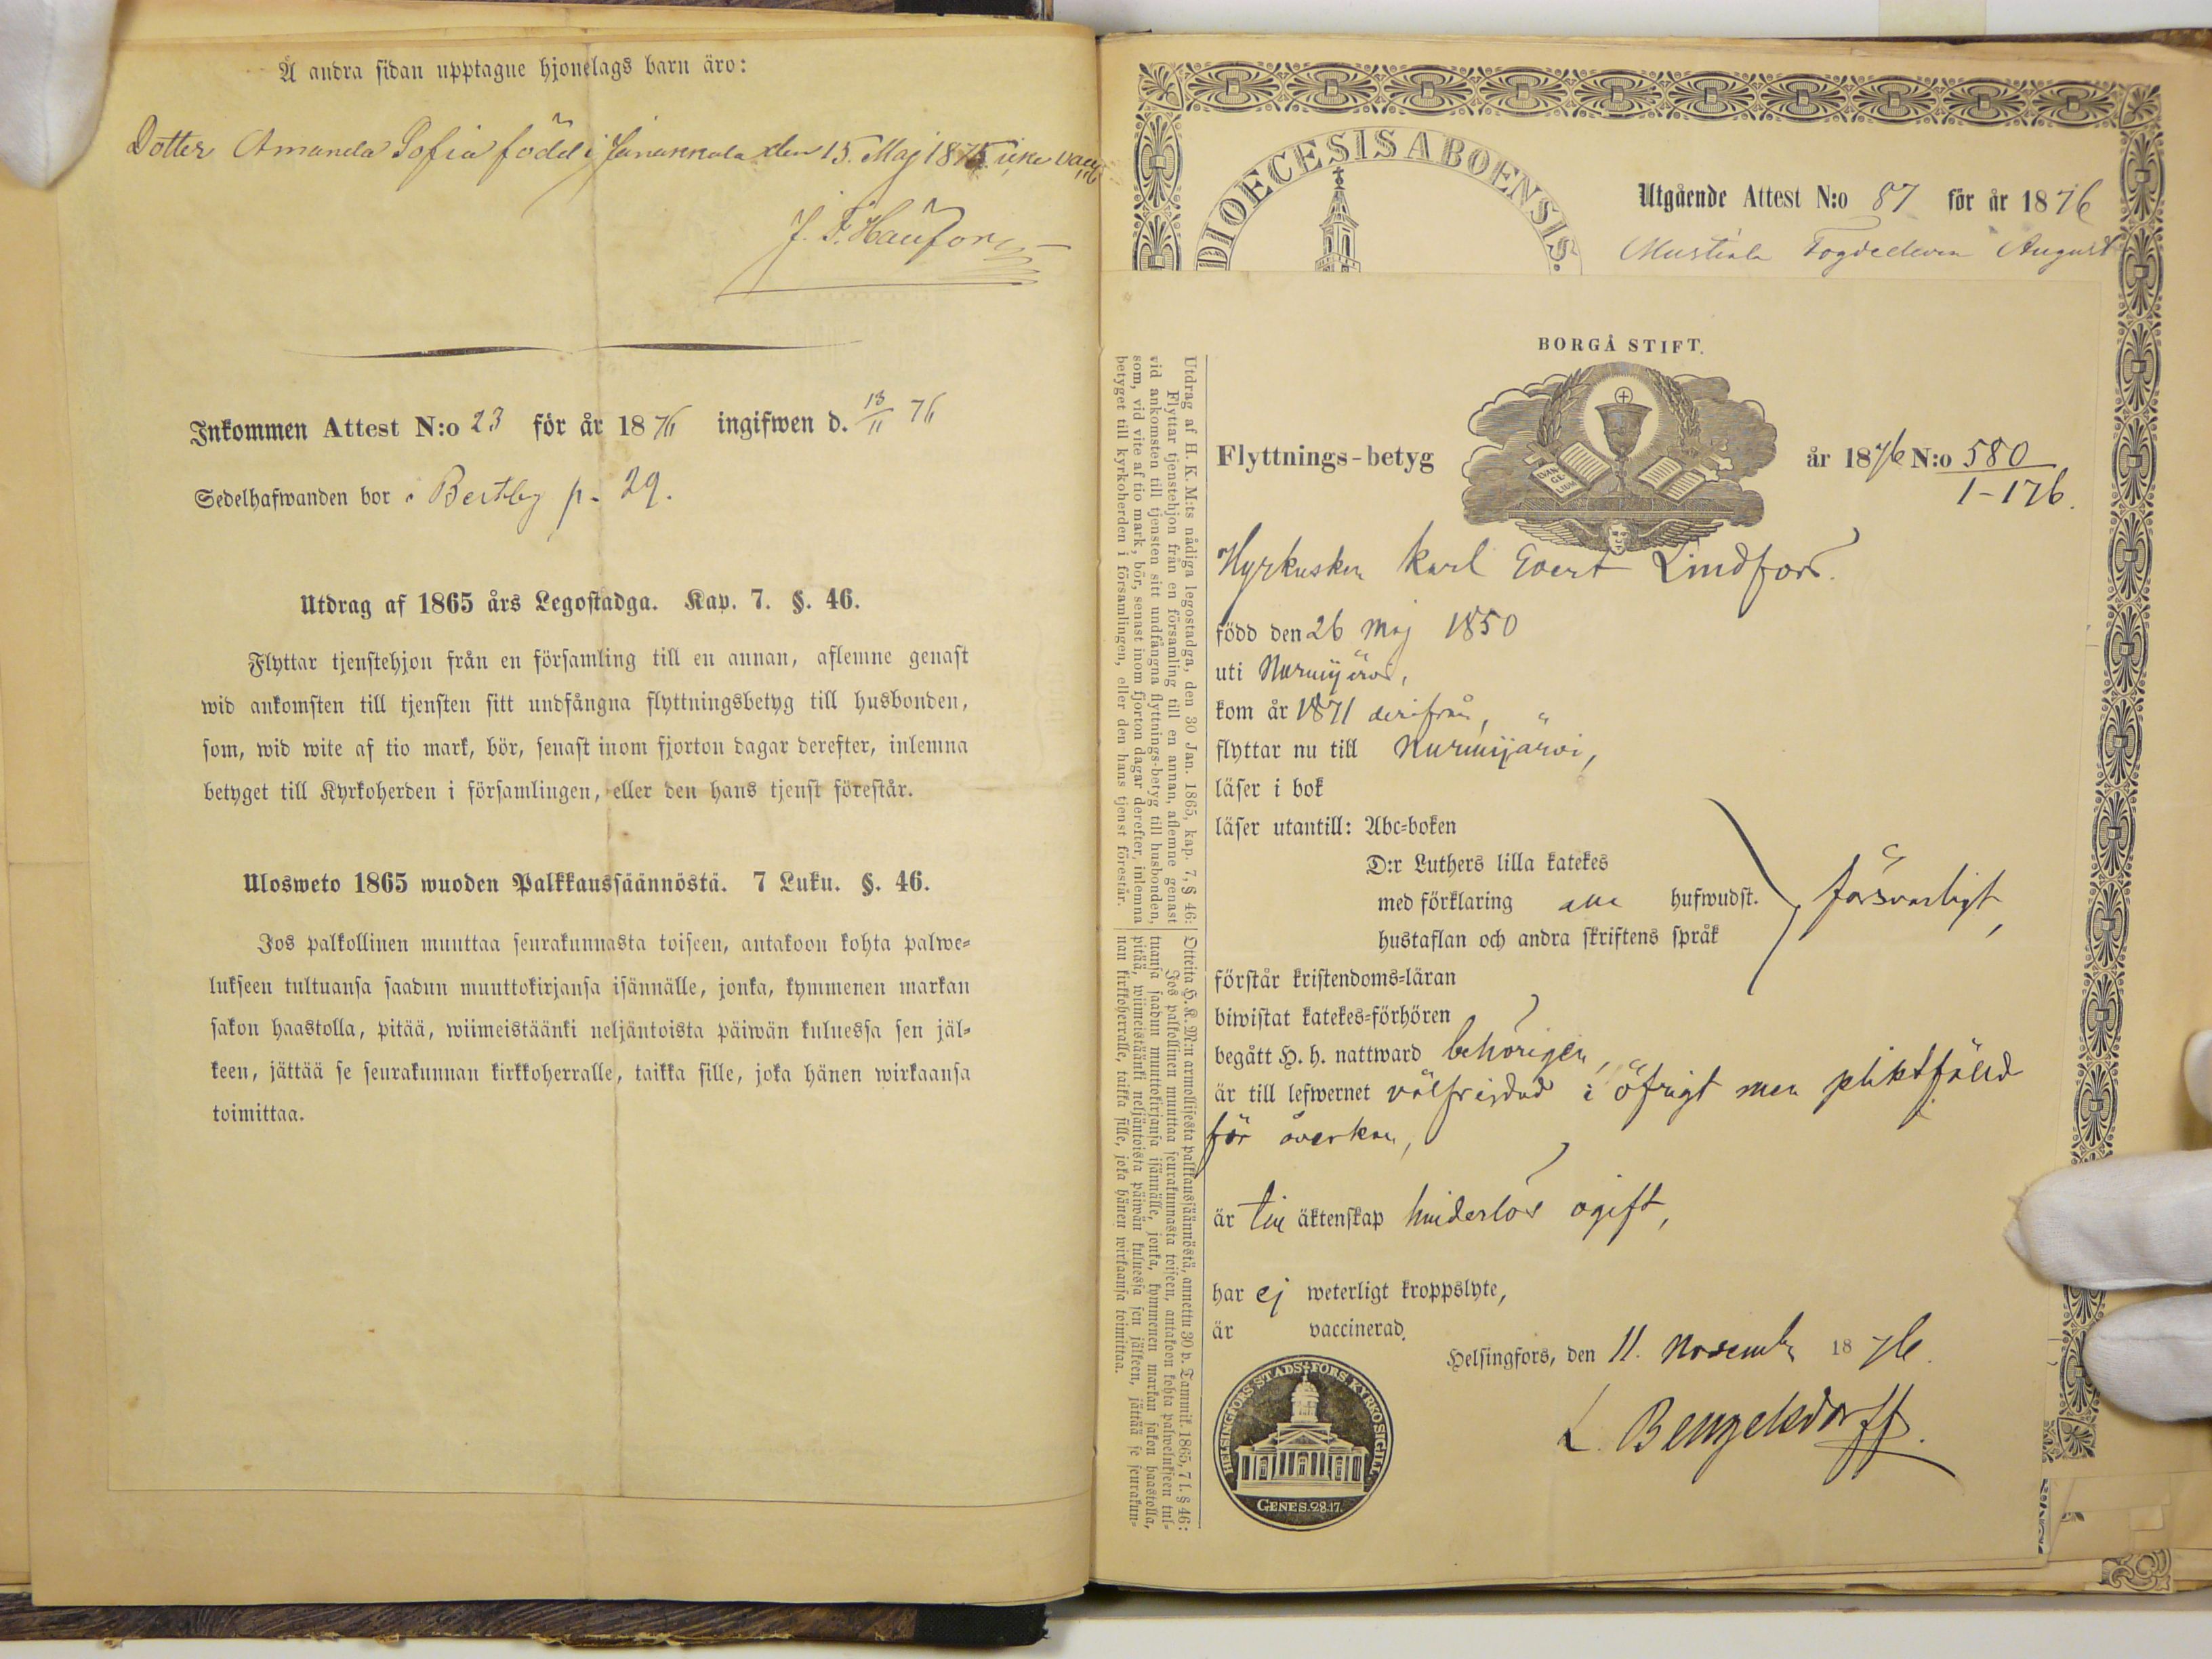 Å andra sidan upptagne hjonelags barn äro:
Dotter Amanda Sofia född i Janakkala den 15. Maj 1875 icke vacc
Inkommen Attest N:o 23 för år 1876 ingifwen d. 13/11 76
Sedelhafwanden bor i Bertby p. 29.
Utdrag af 1865 års Legostadga. Kap. 7. §. 46.
Flyttar tjenstehjon från en församling till en annan, aflemne genast
wid ankomsten till tjensten sitt undfångna flyttningsbetyg till husbonden,
som, wid wite af tio mark, bör, senast inom fjorton dagar derefter, inlemna
betyget till Kyrkoherden i församlingen, eller den hans tjenst förestår.
Ulosweto 1865 wuoden Palkkaussäännöstä. 7 Luku. §. 46.
Jos palkollinen muuttaa seurakunnasta toiseen, antakoon kohta palwe-
lukseen tultuansa saadun muuttokirjansa isännälle, jonka, kymmenen markan
sakon haastolla, pitää, wiimeistäänki neljäntoista päiwän kuluessa sen jäl-
keen, jättää se seurakunnan kirkkoherralle, taikka sille, joka hänen wirkaansa
toimittaa.
DIOECESIS ABOENSIS.
Utgående Attest N:o 87 för år 1876
Mustiala August
BORGÅ STIFT.
EVAN
GE
LIUM
Flyttnings-betyg år 1876 N:o 580
1-176.
Hyrkusken Karl Evert Lindfors.
född den 26 Maj 1850
uti Nurmijärvi,
kom år 1871 derifrån,
flyttar nu till Nurmijärvi,
läser i bok
läser utantill: Abc-boken
D:r Luthers lilla katekes
med förklaring alla hufwudst. försvarligt,
hustaflan och andra skriftens språk
förstår kristendoms-läran
biwistat katekes-förhören
begått H. h. nattward behörigen,
är till lefwernet välfrejdad i öfrigt men pliktfälld
för åverkan,
är till äktenskap hinderlös ogift,
har ej weterligt kroppslyte,
är vaccinerad.
Helsingfors, den 11. Novemb 1876.
L. Bengelsdorff.
HELSINGFORS STADS-FÖRS. KYRKOSIGILL.
GENES. 28.17.
Utdrag af H. K. M:ts nådiga legostadga, den 30 Jan. 1865, kap. 7, § 46:
Flyttar tjenstehjon från en församling till en annan, aflemne genast
vid ankomsten till tjensten sitt undfångna flyttnings-betyg till husbonden,
som, vid vite af tio mark, bör, senast inom fjorton dagar derefter, inlemna
betyget till kyrkoherden i församlingen, eller den hans tjenst förestår.
Otteita H. K. M:n armollisesta palkkaussäännöstä, annettu 30 p. Tammik. 1865, 7 l. § 46:
Jos palkollinen muuttaa seurakunnasta toiseen, antakoon kohta palwelukseen tul-
tuansa saadun muuttokirjansa isännälle, jonka, kymmenen markan sakon haastolla,
pitää, wiimeistäänki neljäntoista päiwän kuluessa sen jälkeen, jättää se seurakun-
nan kirkkoherralle, taikka sille, joka hänen wirkaansa toimittaa.